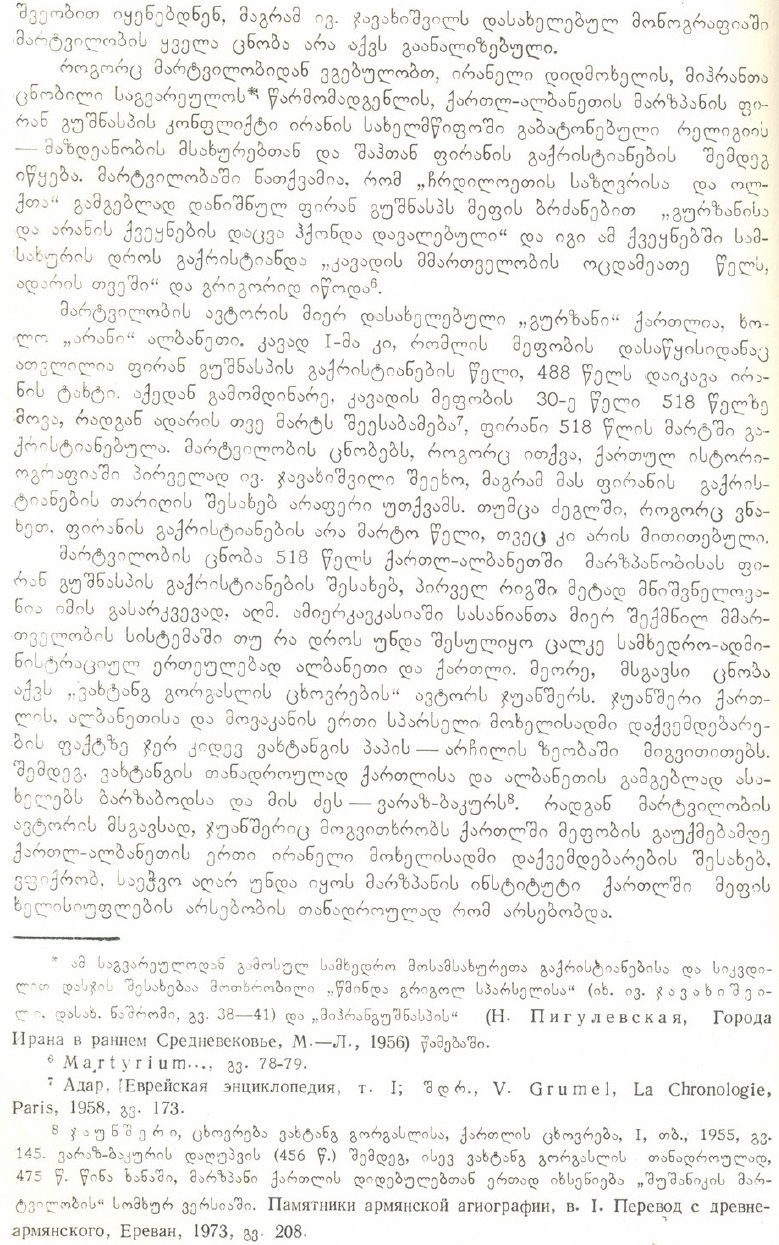 შვეობით იყენებდნენ, მაგრამ ივ. ჯავახიშვილს დასახელებულ მონოგრაფიაში
მარტვილობის ყველა ცნობა არა აქვს გაანალიზებული.
როგორც მარტვილობიდან ვგებულობთ, ირანელი დიდმოხელის, მიჰრანთა
ცნობილი საგვარეულოს* წარმომადგენლის, ქართლ-ალბანეთის მარზპანის ფი-
რან გუშნასპის კონფლიქტი ირანის სახელმწიფოში გაბატონებული რელიგიის
— მაზდეანობის მსახურებთან და შაჰთან ფირანის გაქრისტიანების შემდეგ
იწყება. მარტვილობაში ნათქვამია, რომ „ჩრდილოეთის საზღვრისა და ოლ-
ქთა“ გამგებლად დანიშნულ ფირან გუშნასპს მეფის ბრძანებით „გურზანისა
და არანის ქვეყნების დაცვა ჰქონდა დავალებული“ და იგი ამ ქვეყნებში სამ-
სახურის დროს გაქრისტიანდა „კავადის მმართველობის ოცდამეათე წელს,
ადარის თვეში“ და გრიგორიდ იწოდა⁶.
მარტვილობის ავტორის მიერ დასახელებული „გურზანი“ ქართლია, ხო-
ლო „არანი“ ალბანეთი. კავად I-მა კი, რომლის მეფობის დასაწყისიდანაც
ათვლილია ფირან გუშნასპის გაქრისტიანების წელი, 488 წელს დაიკავა ირა-
ნის ტახტი. აქედან გამომდინარე, კავადის მეფობის 30-ე წელი 518 წელზე
მოვა, რადგან ადარის თვე მარტს შეესაბამება⁷, ფირანი 518 წლის მარტში გა-
ქრისტიანებულა. მარტვილობის ცნობებს, როგორც ითქვა, ქართულ ისტორი-
ოგრაფიაში პირველად ივ. ჯავახიშვილი შეეხო, მაგრამ მას ფირანის გაქრის-
ტიანების თარიღის შესახებ არაფერი უთქვამს. თუმცა ძეგლში, როგორც ვნა-
ხეთ, ფირანის გაქრისტიანების არა მარტო წელი, თვეც კი არის მითითებული.
მარტვილობის ცნობა 518 წელს ქართლ-ალბანეთში მარზპანობისას ფი-
რან გუშნასპის გაქრისტიანების შესახებ, პირველ რიგში მეტად მნიშვნელოვა-
ნია იმის გასარკვევად, აღმ. ამიერკავკასიაში სასანიანთა მიერ შექმნილ მმარ-
თველობის სისტემაში თუ რა დროს უნდა შესულიყო ცალკე სამხედრო-ადმი-
ნისტრაციულ ერთეულებად ალბანეთი და ქართლი. მეორე, მსგავსი ცნობა
აქვს „ვახტანგ გორგასლის ცხოვრების“ ავტორს ჯუანშერს. ჯუანშერი ქართ-
ლის, ალბანეთისა და მოვაკანის ერთი სპარსელი მოხელისადმი დაქვემდებარე-
ბის ფაქტზე ჯერ კიდევ ვახტანგის პაპის — არჩილის ზეობაში მიგვითითებს.
შემდეგ, ვახტანგის თანადროულად ქართლისა და ალბანეთის გამგებლად ასა-
ხელებს ბარზაბოდსა და მის ძეს — ვარაზ-ბაკურს⁸. რადგან მარტვილობის
ავტორის მსგავსად, ჯუანშერიც მოგვითხრობს ქართლში მეფობის გაუქმებამდე
ქართლ-ალბანეთის ერთი ირანელი მოხელისადმი დაქვემდებარების შესახებ,
ვფიქრობ, საეჭვო აღარ უნდა იყოს მარზპანის ინსტიტუტი ქართლში მეფის
ხელისუფლების არსებობის თანადროულად რომ არსებობდა.
* ამ საგვარეულოდან გამოსულ სამხედრო მოსამსახურეთა გაქრისტიანებისა და სიკვდი-
ლით დასჯის შესახებაა მოთხრობილი „წმინდა გრიგოლ სპარსელისა“ (იხ. ივ. ჯავახიშვი-
ლი, დასახ. ნაშრომი, გვ. 38—41) და „მიჰრანგუშნასპის“ (Н. Пигулевская, Города
Ирана в раннем Средневековье, М.—Л., 1956) წამებაში.
⁶ Martyrium..., გვ. 78-79.
⁷ Адар, [Еврейская энциклопедия, т. I; შდრ., V. Grumel, La Chronologie,
Paris, 1958, გვ. 173.
⁸ ჯუანშერი, ცხოვრება ვახტანგ გორგასლისა, ქართლის ცხოვრება, I, თბ., 1955, გვ.
145. ვარაზ-ბაკურის დაღუპვის (456 წ.) შემდეგ, ისევ ვახტანგ გორგასლის თანადროულად,
475 წ. წინა ხანაში, მარზპანი ქართლის დიდებულებთან ერთად იხსენიება „შუშანიკის მარ-
ტვილობის“ სომხურ ვერსიაში. Памятники армянской агиографии, в. I. Перевод с древне-
армянского, Ереван, 1973, გვ. 208.